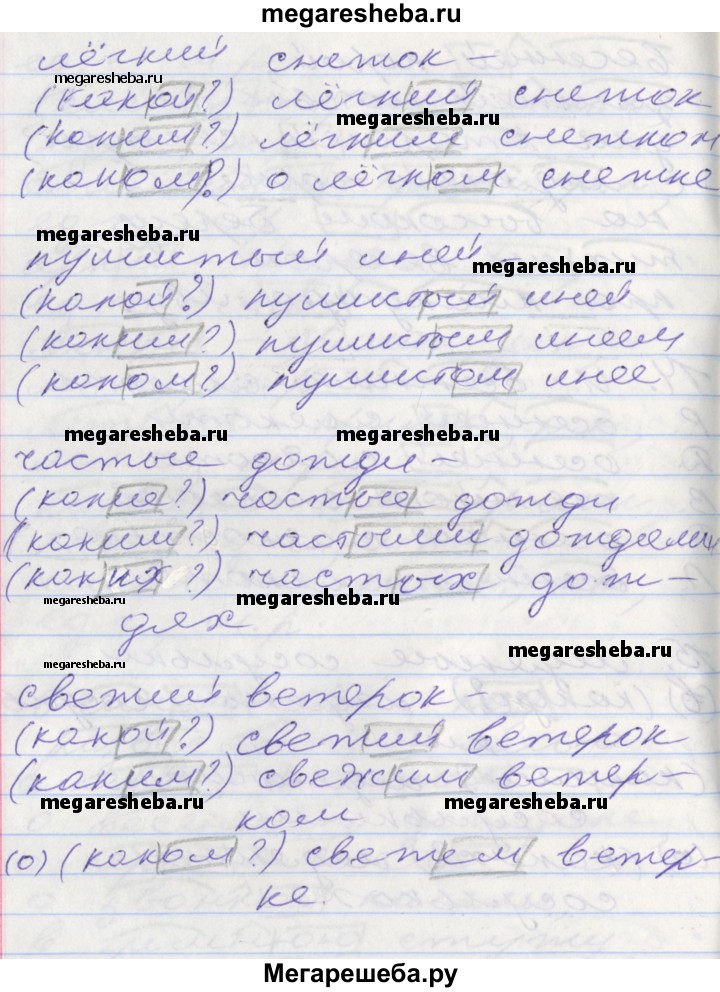 megaresheba.ru
лёгкий снежок –
megaresheba.ru
(какой?) лёгкий снежок
megaresheba.ru
(каким?) лёгким снежком
(каком?) о лёгком снежке
megaresheba.ru
пушистый иней –
megaresheba.ru
(какой?) пушистый иней
(каким?) пушистым инеем
(каком?) пушистом инее
megaresheba.ru megaresheba.ru
частые дожди –
(какие?) частые дожди
(каким?) частыми дождями
(каких?) частых дож-
megaresheba.ru megaresheba.ru
дях
megaresheba.ru
megaresheba.ru
свежий ветерок –
(какой?) свежий ветерок
(каким?) свежим ветер-
megaresheba.ru megaresheba.ru
ком
(о) (каком?) свежем ветер-
ке.
megaresheba.ru
Мегарешеба.ру